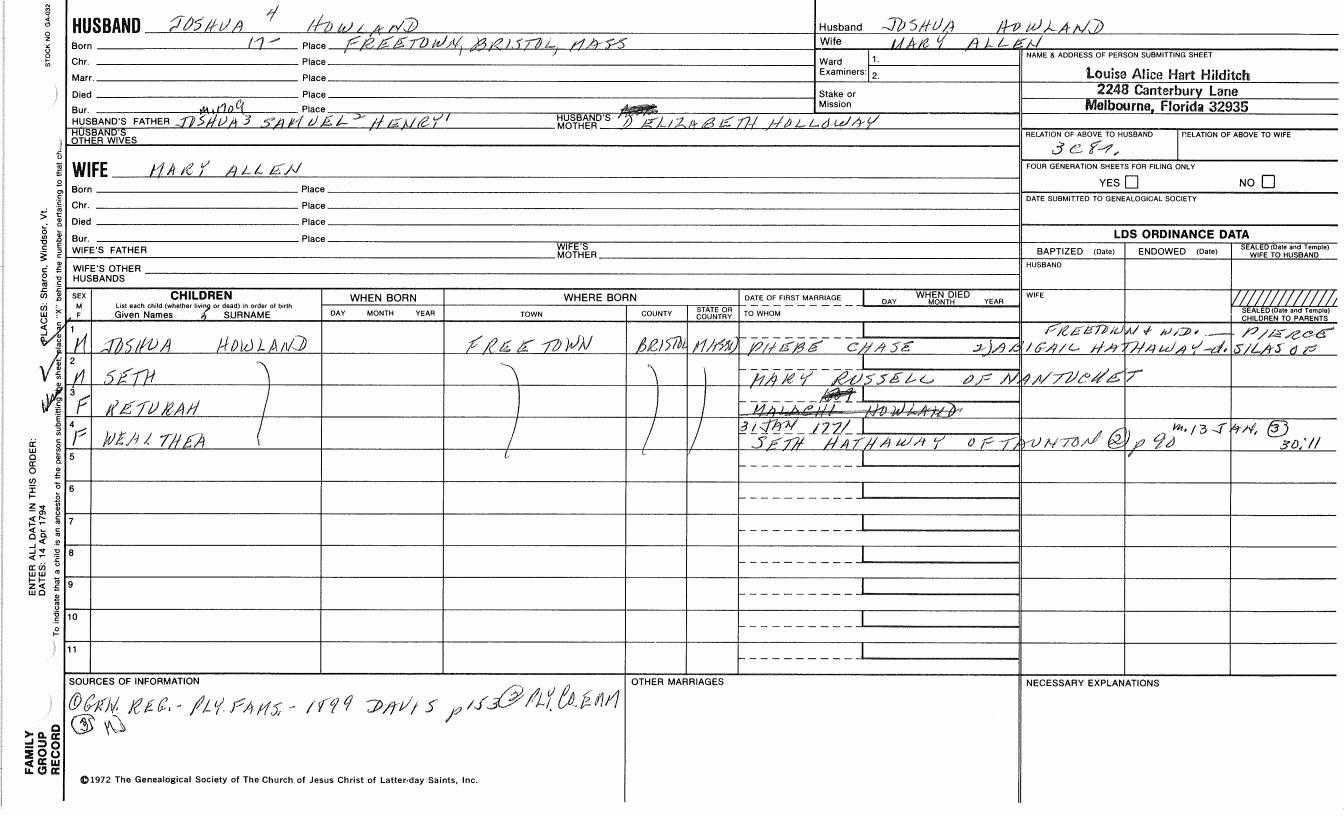 STOCK NO GA-032
HUSBAND JOSHUA 4 HOWLAND
Born 17- Place FREETOWN, BRISTOL, MASS
Chr. Place
Marr. Place
Died Place
Bur. Place
m. 1709
HUSBAND'S FATHER JOSHUA 3 SAMUEL 2 HENRY 1 HUSBAND'S MOTHER ELIZABETH HOLLOWAY
HUSBAND'S OTHER WIVES
WIFE MARY ALLEN
Born Place
Chr. Place
Died Place
Bur. Place
WIFE'S FATHER WIFE'S MOTHER
WIFE'S OTHER HUSBANDS
Husband JOSHUA HOWLAND
Wife MARY ALLEN
Ward Examiners: 1. 2.
Stake or Mission
NAME & ADDRESS OF PERSON SUBMITTING SHEET
Louise Alice Hart Hilditch
2248 Canterbury Lane
Melbourne, Florida 32935
RELATION OF ABOVE TO HUSBAND RELATION OF ABOVE TO WIFE
3C8r.
FOUR GENERATION SHEETS FOR FILING ONLY
YES NO
DATE SUBMITTED TO GENEALOGICAL SOCIETY
LDS ORDINANCE DATA
BAPTIZED (Date) ENDOWED (Date) SEALED (Date and Temple) WIFE TO HUSBAND
HUSBAND
WIFE
SEALED (Date and Temple) CHILDREN TO PARENTS
SEX M F
CHILDREN
List each child (whether living or dead) in order of birth
Given Names SURNAME
WHEN BORN
DAY MONTH YEAR
WHERE BORN
TOWN COUNTY STATE OR COUNTRY
DATE OF FIRST MARRIAGE
TO WHOM
WHEN DIED
DAY MONTH YEAR
FREETOWN & WID. — PIERCE
1 M JOSHUA HOWLAND FREETOWN BRISTOL MASS PHEBE CHASE 2) ABIGAIL HATHAWAY-d. SILAS OF
2 M SETH MARY RUSSELL OF NANTUCKET
3 F RETURAH MALACHI HOWLAND
4 F WEALTHEA 31 JAN 1771 SETH HATHAWAY OF TAUNTON (2) p 90 m. 13 JAN, (3) 30:11
5
6
7
8
9
10
11
SOURCES OF INFORMATION
(1) GEN. REG. - PLY. FAMS. - 1899 DAVIS p 153 (2) PLY. CO.
(3)
OTHER MARRIAGES
NECESSARY EXPLANATIONS
©1972 The Genealogical Society of The Church of Jesus Christ of Latter-day Saints, Inc.
FAMILY GROUP RECORD
ENTER ALL DATA IN THIS ORDER:
DATES: 14 Apr 1794
PLACES: Sharon, Windsor, Vt.
To indicate that a child is an ancestor of the person submitting the sheet, place an "X" behind the number pertaining to that